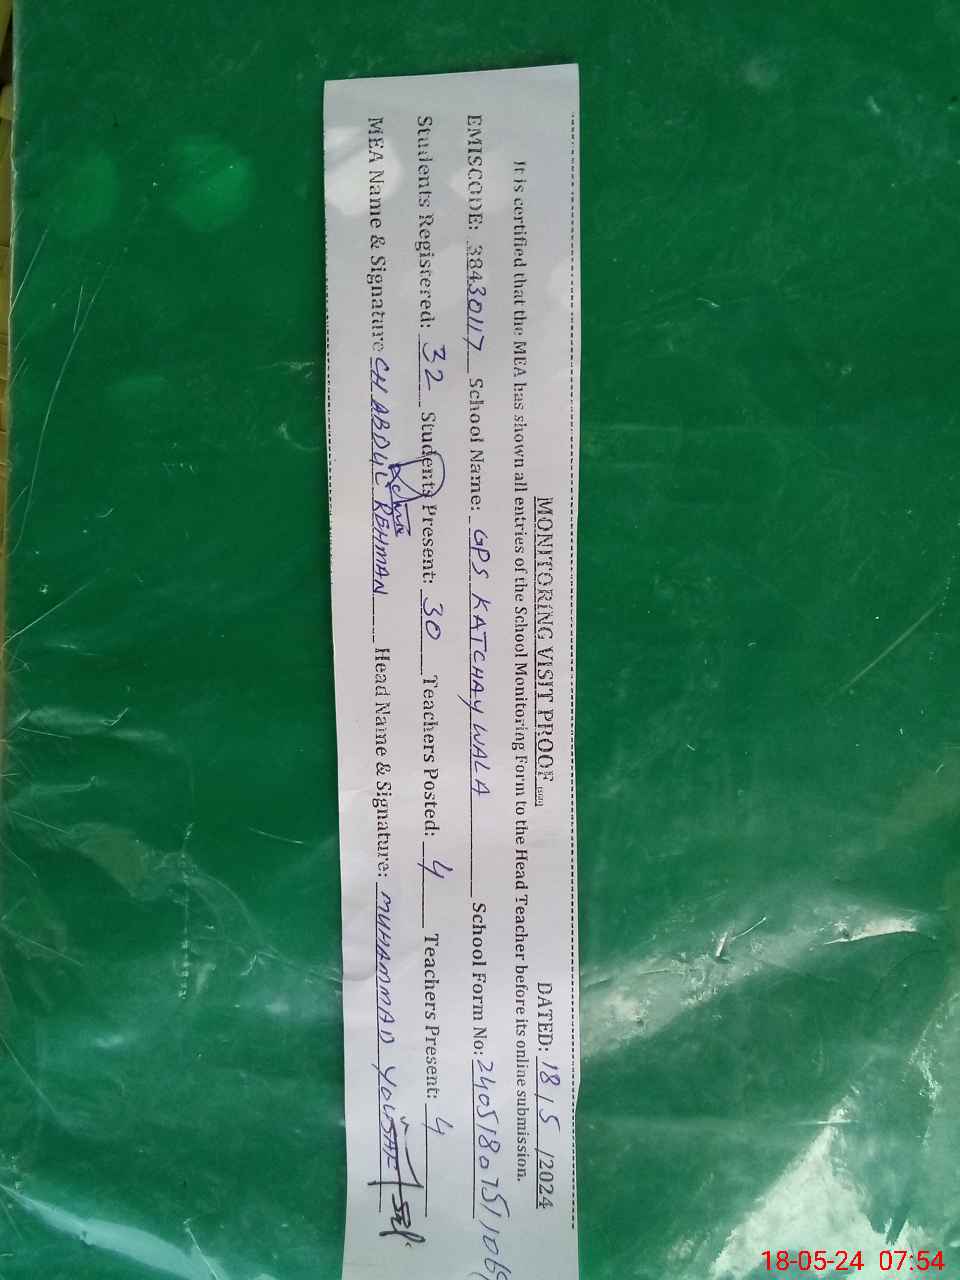 MONITORING VISIT PROOF DATED: 18/5/2024
It is certified that the MEA has shown all entries of the School Monitoring Form to the Head Teacher before its online submission.
EMISCODE: 38430117 School Name: GPS KATCHAY WALA School Form No: 2405180751106
Students Registered: 32 Students Present: 30 Teachers Posted: 4 Teachers Present: 4
MEA Name & Signature CH ABDUL REHMAN Head Name & Signature: MUHAMMAD YOUSAF
18-05-24 07:54